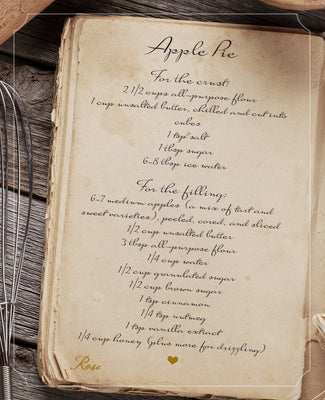 Apple Pie
For the crust:
2 1/2 cups all-purpose flour
1 cup unsalted butter, chilled and cut into
cubes
1 tsp salt
1 tbsp sugar
6-8 tbsp ice water
For the filling:
6-7 medium apples (a mix of tart and
sweet varieties), peeled, cored, and sliced
1/2 cup unsalted butter
3 tbsp all-purpose flour
1/4 cup water
1/2 cup granulated sugar
1/2 cup brown sugar
1 tsp cinnamon
1/4 tsp nutmeg
1 tsp vanilla extract
1/4 cup honey (plus more for drizzling)
Rose